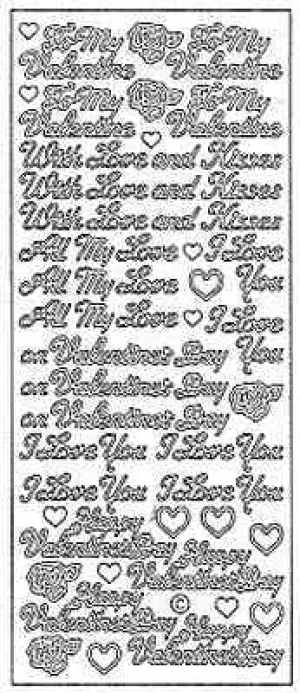 To My To My
Valentine Valentine
To My To My
Valentine Valentine
With Love and Kisses
With Love and Kisses
With Love and Kisses
All My Love I Love
All My Love You
All My Love I Love
on Valentines Day You
on Valentines Day
on Valentines Day
I Love You I Love You
I Love You I Love You
Happy
Valentines Day Happy
Valentines Day
Happy
©
Valentines Day Happy
Valentines Day